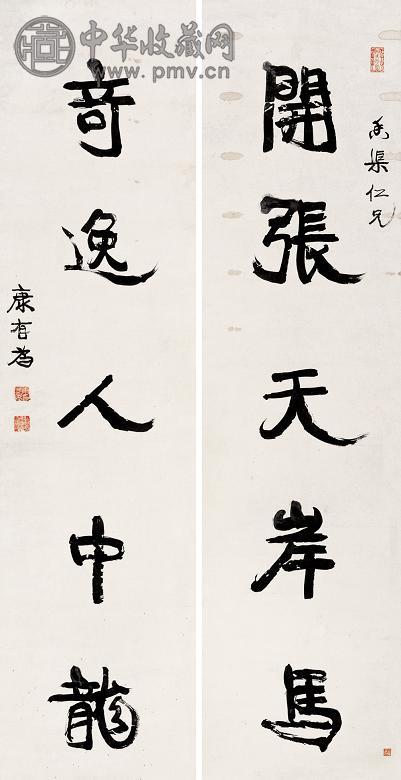 中华收藏网
www.pmv.cn
開張天岸馬
渠仁兄
奇逸人中龍
康有為